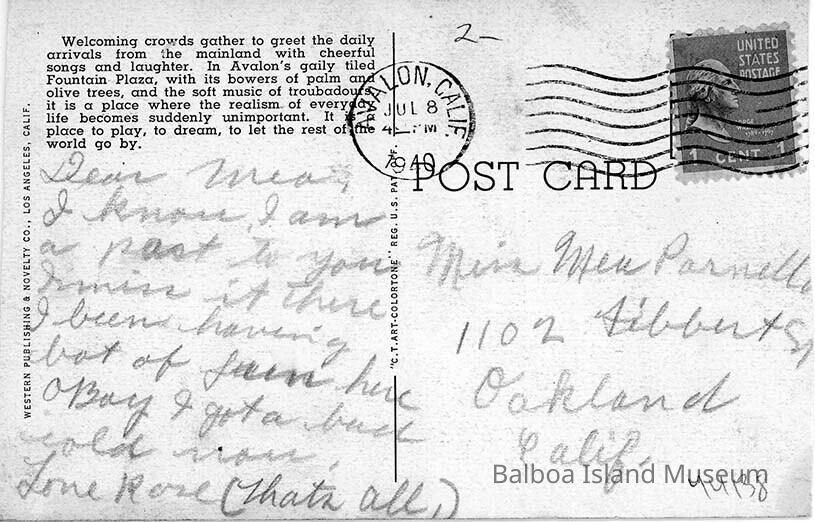 Welcoming crowds gather to greet the daily
arrivals from the mainland with cheerful
songs and laughter. In Avalon's gaily tiled
Fountain Plaza, with its bowers of palm and
olive trees, and the soft music of troubadours,
it is a place where the realism of everyday
life becomes suddenly unimportant. It is a
place to play, to dream, to let the rest of the
world go by.
WESTERN PUBLISHING & NOVELTY CO., LOS ANGELES, CALIF.
Dear Mea,
I know I am
a past to you
I miss it there
I been having
bot of fun here
O Boy I got a bad
cold now.
Love Rose (Thats all,)
"C.T. ART-COLORTONE" REG. U.S. PAT. OFF.
2-
AVALON, CALIF.
JUL 8
4 PM
1940
UNITED
STATES
POSTAGE
1 CENT 1
POST CARD
Miss Mea
1102
Oakland
Calif.
Balboa Island Museum